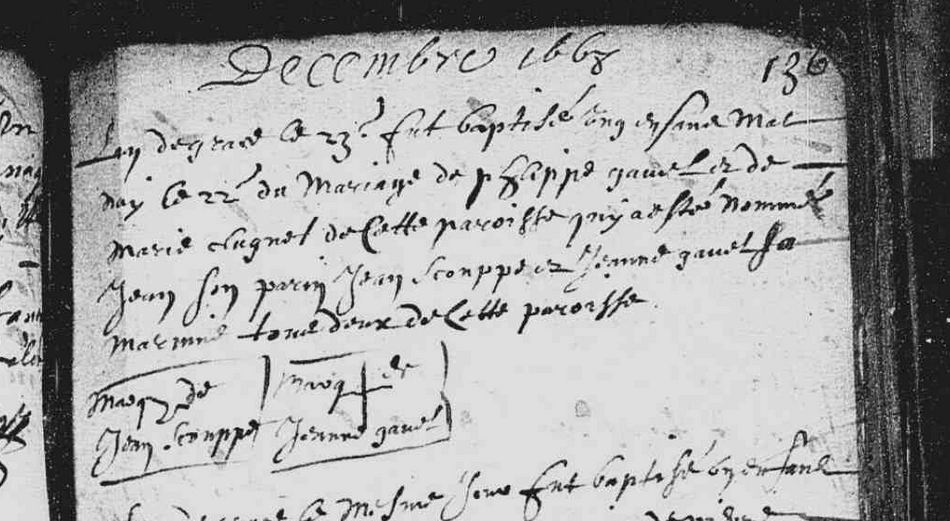 Decembre 1668
136
Lan de grace le 23e fut baptisé ung enfant mal
nay le 22e du Mariage de phlippe gavel et de
Marie clugnet de Cette paroisse quy a esté Nommé
Jean son parin Jean sconppe et Jeanne gavel sa
Marinne tous deux de Cette paroisse
Marq de
Jean sconppe
Marq de
Jeanne gavel
de grace le Mesme Jour fut baptisé un enfant